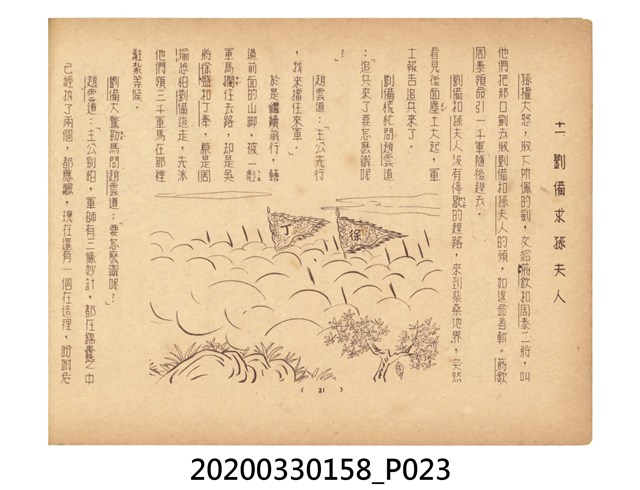 十一 劉備求孫夫人
孫權大怒，取下所佩的劍，交給蔣欽和周泰二將，叫
他們把那口劍去取劉備和孫夫人的頭，如違命者斬。蔣欽
周泰領命引一千軍隨後趕去。
劉備和孫夫人沒有停歇的趕路，來到柴桑地界，突然
看見後面塵土大起，軍
士報告追兵來了。
劉備慌忙問趙雲道
：「追兵來了要怎麽辦呢
？」
趙雲道：「主公先行
，我來擋住來軍。」
於是繼續前行，轉
過前面的山脚，被一彪
軍馬攔住去路，却是吳
將徐盛和丁奉，原是周
瑜恐怕劉備逃走，先派
他們領三千軍馬在那裡
駐紮等候。
劉備大驚勒馬問趙雲道：「要怎麽辦呢？」
趙雲道：「主公別怕，軍師有三條妙計，都在錦囊之中
已經拆了兩個，都應驗，現在還有一個在這裡，吩咐危
丁
徐
( 21 )
20200330158_P023